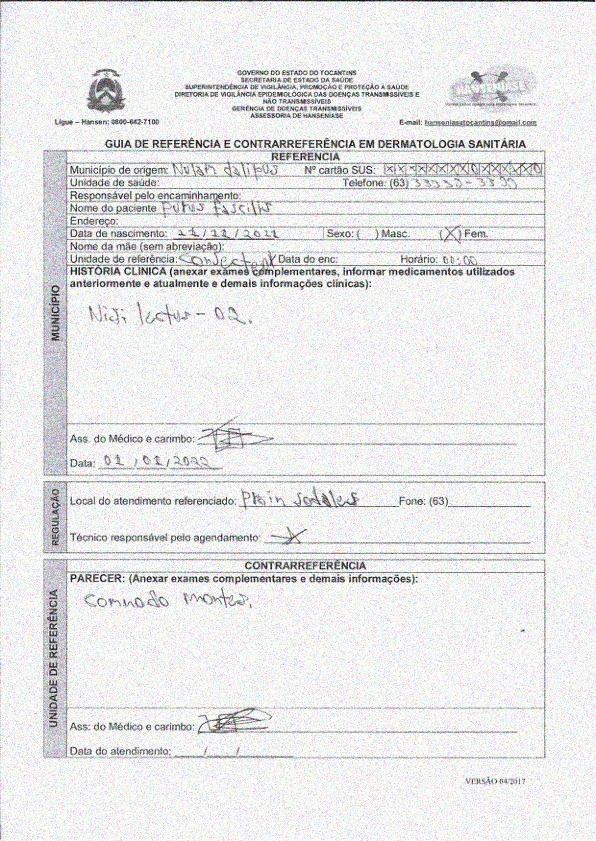 GOVERNO DO ESTADO DO TOCANTINS
SECRETARIA DE ESTADO DA SAÚDE
SUPERINTENDÊNCIA DE VIGILÂNCIA, PROMOÇÃO E PROTEÇÃO A SAÚDE
DIRETORIA DE VIGILÂNCIA EPIDEMIOLÓGICA DAS DOENÇAS TRANSMISSÍVEIS E
NÃO TRANSMISSÍVEIS
GERÊNCIA DE DOENÇAS TRANSMISSÍVEIS
ASSESSORIA DE HANSENÍASE
Ligue – Hansen: 0800-642-7100 E-mail: hanseniasetocantins@gmail.com
GUIA DE REFERÊNCIA E CONTRARREFERÊNCIA EM DERMATOLOGIA SANITÁRIA
REFERENCIA
Município de origem: Nº cartão SUS:
Unidade de saúde: Telefone: (63)
Responsável pelo encaminhamento:
Nome do paciente Purus
Endereço:
Data de nascimento: Sexo: ( ) Masc. (X) Fem.
Nome da mãe (sem abreviação):
Unidade de referência: Data do enc: Horário: 00:00
HISTÓRIA CLINICA (anexar exames complementares, informar medicamentos utilizados
anteriormente e atualmente e demais informações clinicas):
lectus - 02.
Ass. do Médico e carimbo:
Data: 02/02/2022
MUNICÍPIO
Local do atendimento referenciado: Fone: (63)
Técnico responsável pelo agendamento:
REGULAÇÃO
CONTRARREFERÊNCIA
PARECER: (Anexar exames complementares e demais informações):
Ass: do Médico e carimbo:
Data do atendimento: / /
UNIDADE DE REFERÊNCIA
VERSÃO 04/2017